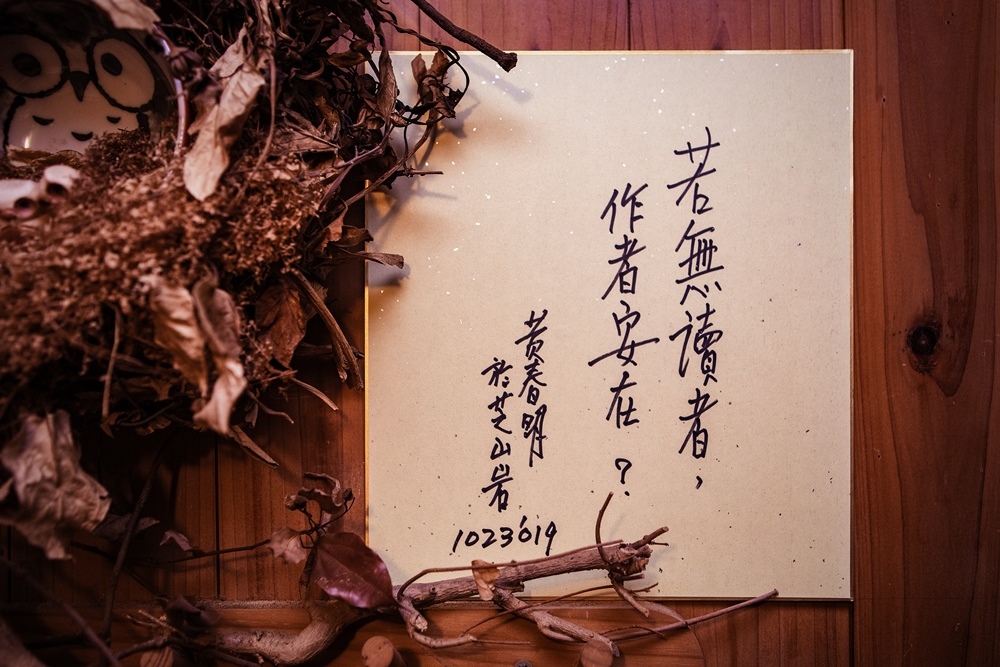 若無讀者，
作者安在？
黃春明
於芝山岩
1023'019